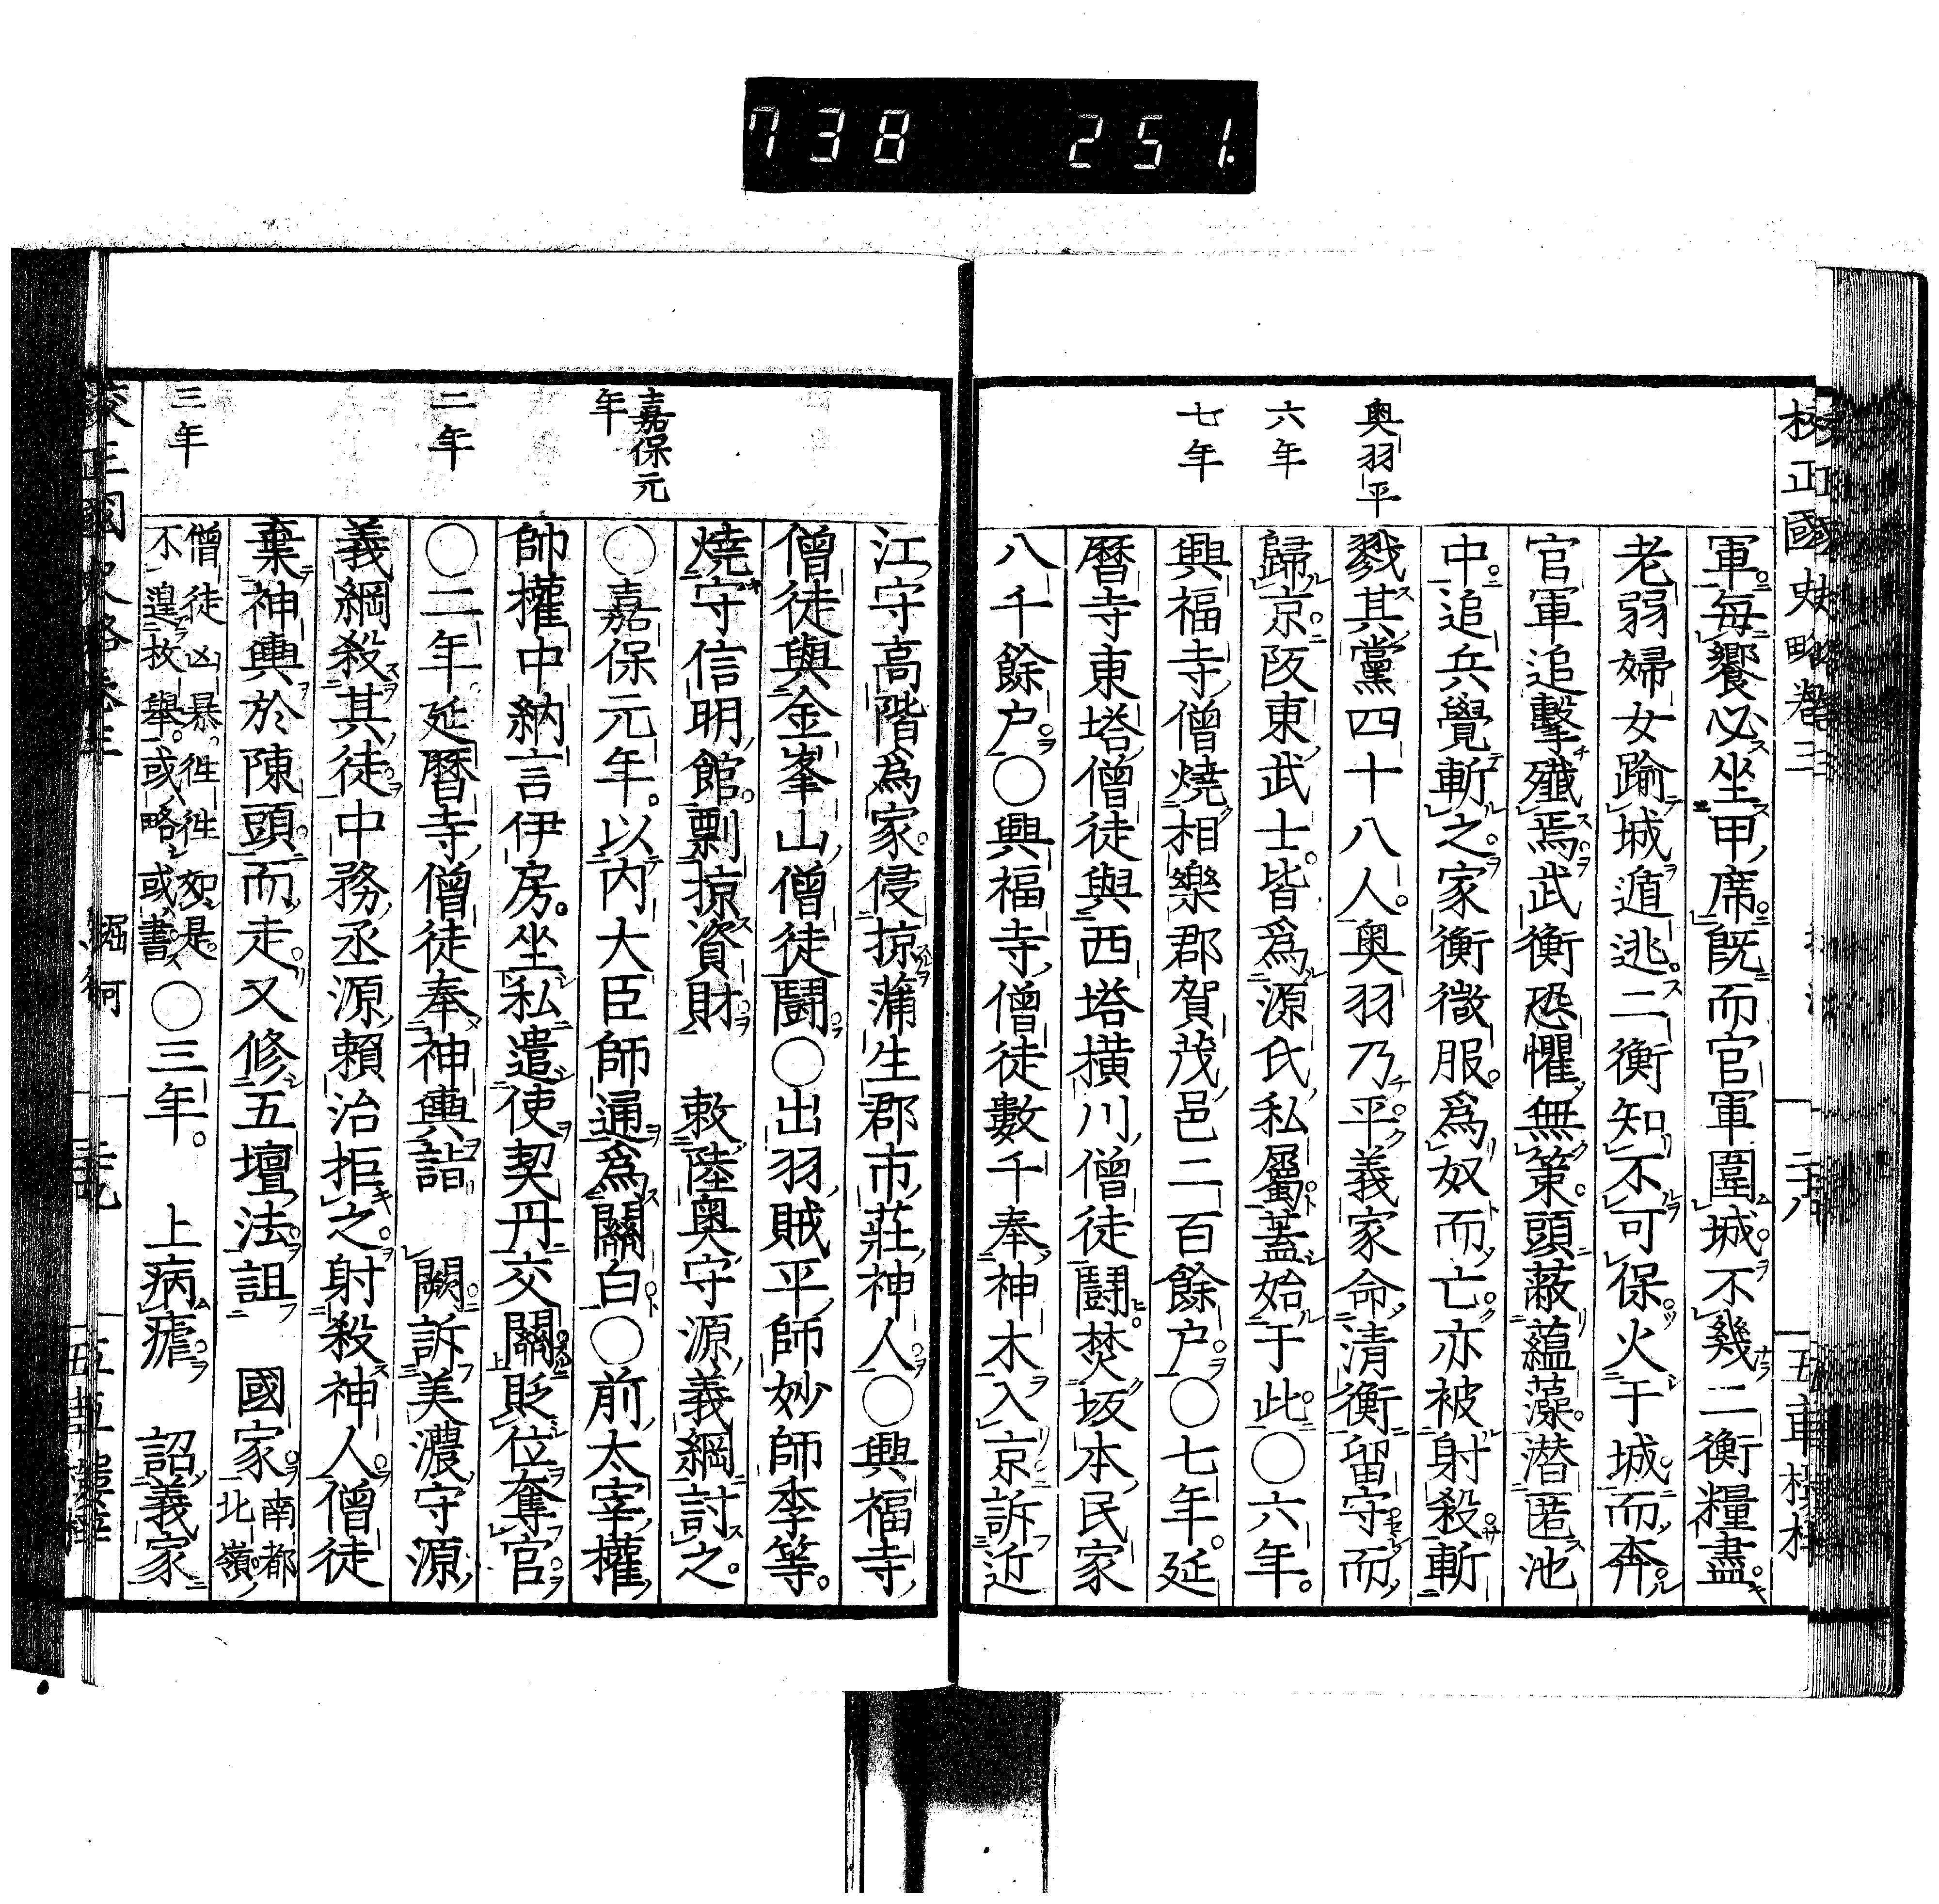 738 251.
校正國史略卷三
二十八
五車樓梓
軍每饗必坐甲席既而官軍圍城不幾二衡糧盡
老弱婦女踰城遁逃二衡知不可保火于城而奔
官軍追擊殲焉武衡恐懼無策頭蔽蘊藻潜匿池
中追兵覺斬之家衡微服爲奴而亡亦被射殺斬
奧羽平
戮其黨四十八人奧羽乃平義家命清衡留守而
六年
歸京阪東武士皆爲源氏私屬蓋始于此〇六年
七年
興福寺僧燒相樂郡賀茂邑二百餘户〇七年延
暦寺東塔僧徒與西塔横川僧徒鬪焚坂本民家
八千餘户〇興福寺僧徒數千奉神木入京訴近
江守高階爲家侵掠蒲生郡市莊神人〇興福寺
僧徒與金峯山僧徒鬪〇出羽賊平師妙師季等
燒守信明館剽掠資財 敕陸奧守源義綱討之
嘉保元年
〇嘉保元年以内大臣師通爲關白〇前太宰權
帥權中納言伊房坐私遣使契丹交關貶位奪官
二年
〇二年延暦寺僧徒奉神輿詣 闕訴美濃守源
義綱殺其徒中務丞源頼治拒之射殺神人僧徒
棄神輿於陳頭而走又修五壇法詛 國家南都北嶺
三年
僧徒凶暴徃徃如是不遑枚舉或略或書〇三年 上病瘧 詔義家
堀河